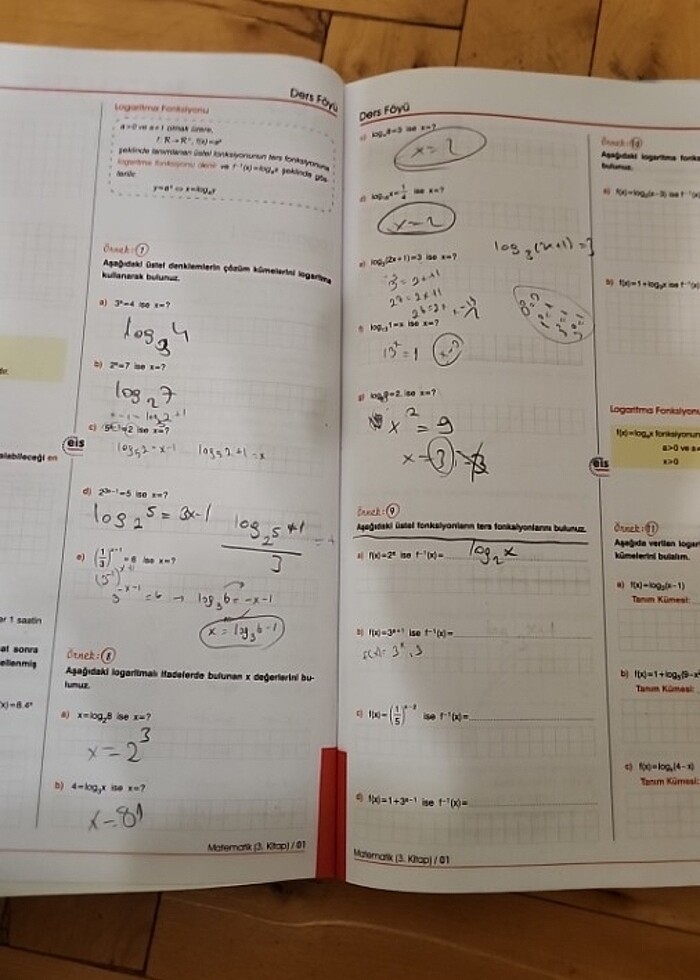 Ders Föyü
Logaritma Fonksiyonu
a>0 ve a≠1 olmak üzere,
f: R → R⁺, f(x)=aˣ
şeklinde tanımlanan üstel fonksiyonunun ters fonksiyonuna
logaritma fonksiyonu denir ve f⁻¹(x)=logₐx şeklinde gös
terilir.
y=aˣ ⇔ x=logₐy
Örnek: 7
Aşağıdaki üstel denklemlerin çözüm kümelerini logaritma
kullanarak bulunuz.
a) 3ˣ=4 ise x=?
log₃4
b) 2ˣ=7 ise x=?
log₂7
c) 5ˣ⁻¹=2 ise x=?
log₅2=x-1 log₅2+1=x
eis
alabileceği en
d) 2³ˣ⁻¹=5 ise x=?
log₂5 = 3x-1
log₂5+1
3
e) (1/3)ˣ⁺¹=6 ise x=?
(3⁻¹)ˣ⁺¹
3⁻ˣ⁻¹=6 → log₃6=-x-1
x=log₃6-1
er 1 saatin
at sonra
ellenmiş
(x)=8.4ˣ
Örnek: 8
Aşağıdaki logaritmalı ifadelerde bulunan x değerlerini bu-
lunuz.
a) x=log₂8 ise x=?
x=2³
b) 4=log₃x ise x=?
x=81
Matematik (3. Kitap) / 01
Ders Föyü
c) logₓ8=3 ise x=?
x=2
ise x=?
x=2
e) log₃(2x+1)=3 ise x=?
log₃(2x+1)=3
3³=2x+1
27=2x+1
26=2x x=13
f) log₁₃1=x ise x=?
13ˣ=1
g) logₓ9=2, ise x=?
x²=9
x=3
eis
Örnek: 9
Aşağıdaki üstel fonksiyonların ters fonksiyonlarını bulunuz.
a) f(x)=2ˣ ise f⁻¹(x)= log₂x
b) f(x)=3ˣ⁺¹ ise f⁻¹(x)=
f(x)=3ˣ.3
c) f(x)=(1/5)ˣ⁻² ise f⁻¹(x)=
d) f(x)=1+3ˣ⁻¹ ise f⁻¹(x)=
Matematik (3. Kitap) / 01
Örnek: 10
Aşağıdaki logaritma fonks
bulunuz.
a) f(x)=log₂(x-3) ise f⁻¹(x)
b) f(x)=1+log₃x ise f⁻¹(x)
Logaritma Fonksiyonu
f(x)=logₐx fonksiyonun
a>0 ve a≠
x>0
Örnek: 11
Aşağıda verilen logar
kümelerini bulalım.
a) f(x)=log₂(x-1)
Tanım Kümesi:
b) f(x)=1+log₅(9-x²
Tanım Kümesi:
c) f(x)=logₓ(4-x)
Tanım Kümesi: